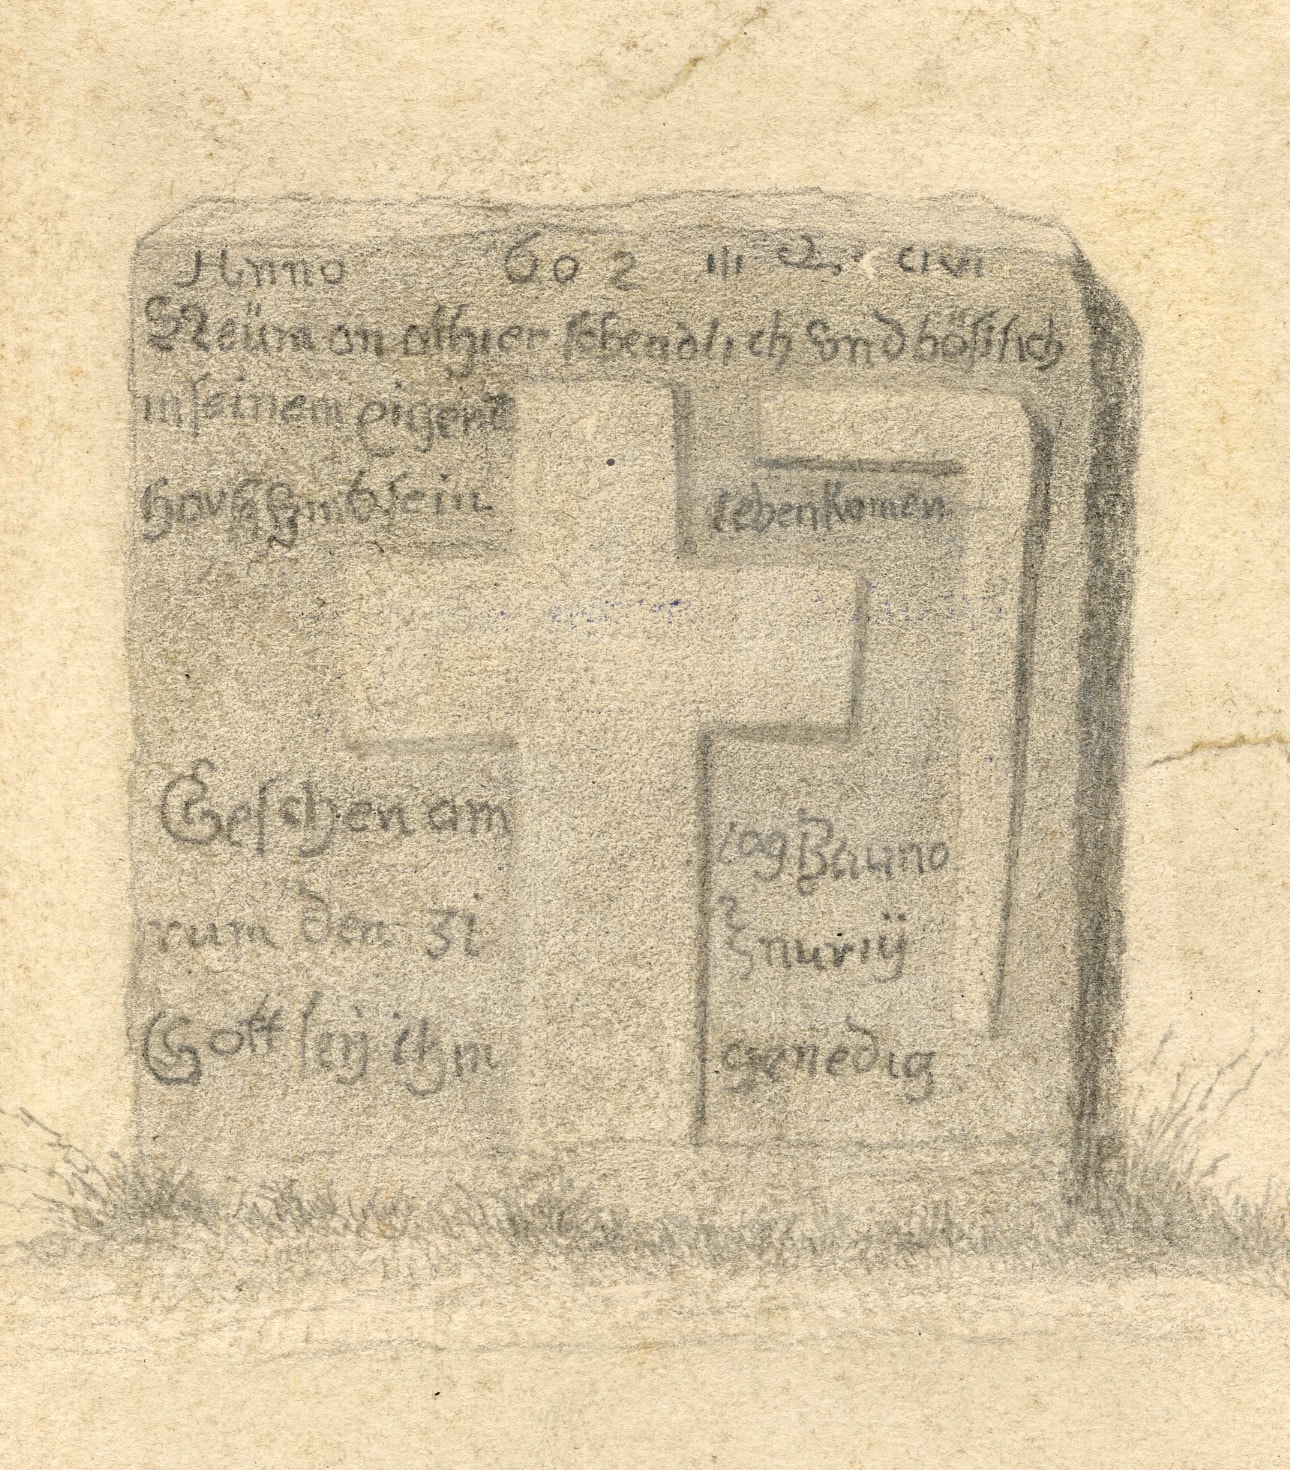 Anno 602
Neüm an alhier schendlich vnd bößlich
in seinem eigenē
Hovß vmb sein leben Komen
Geschen am tag Bruno
rum den 31
Gott seÿ ihm genedig